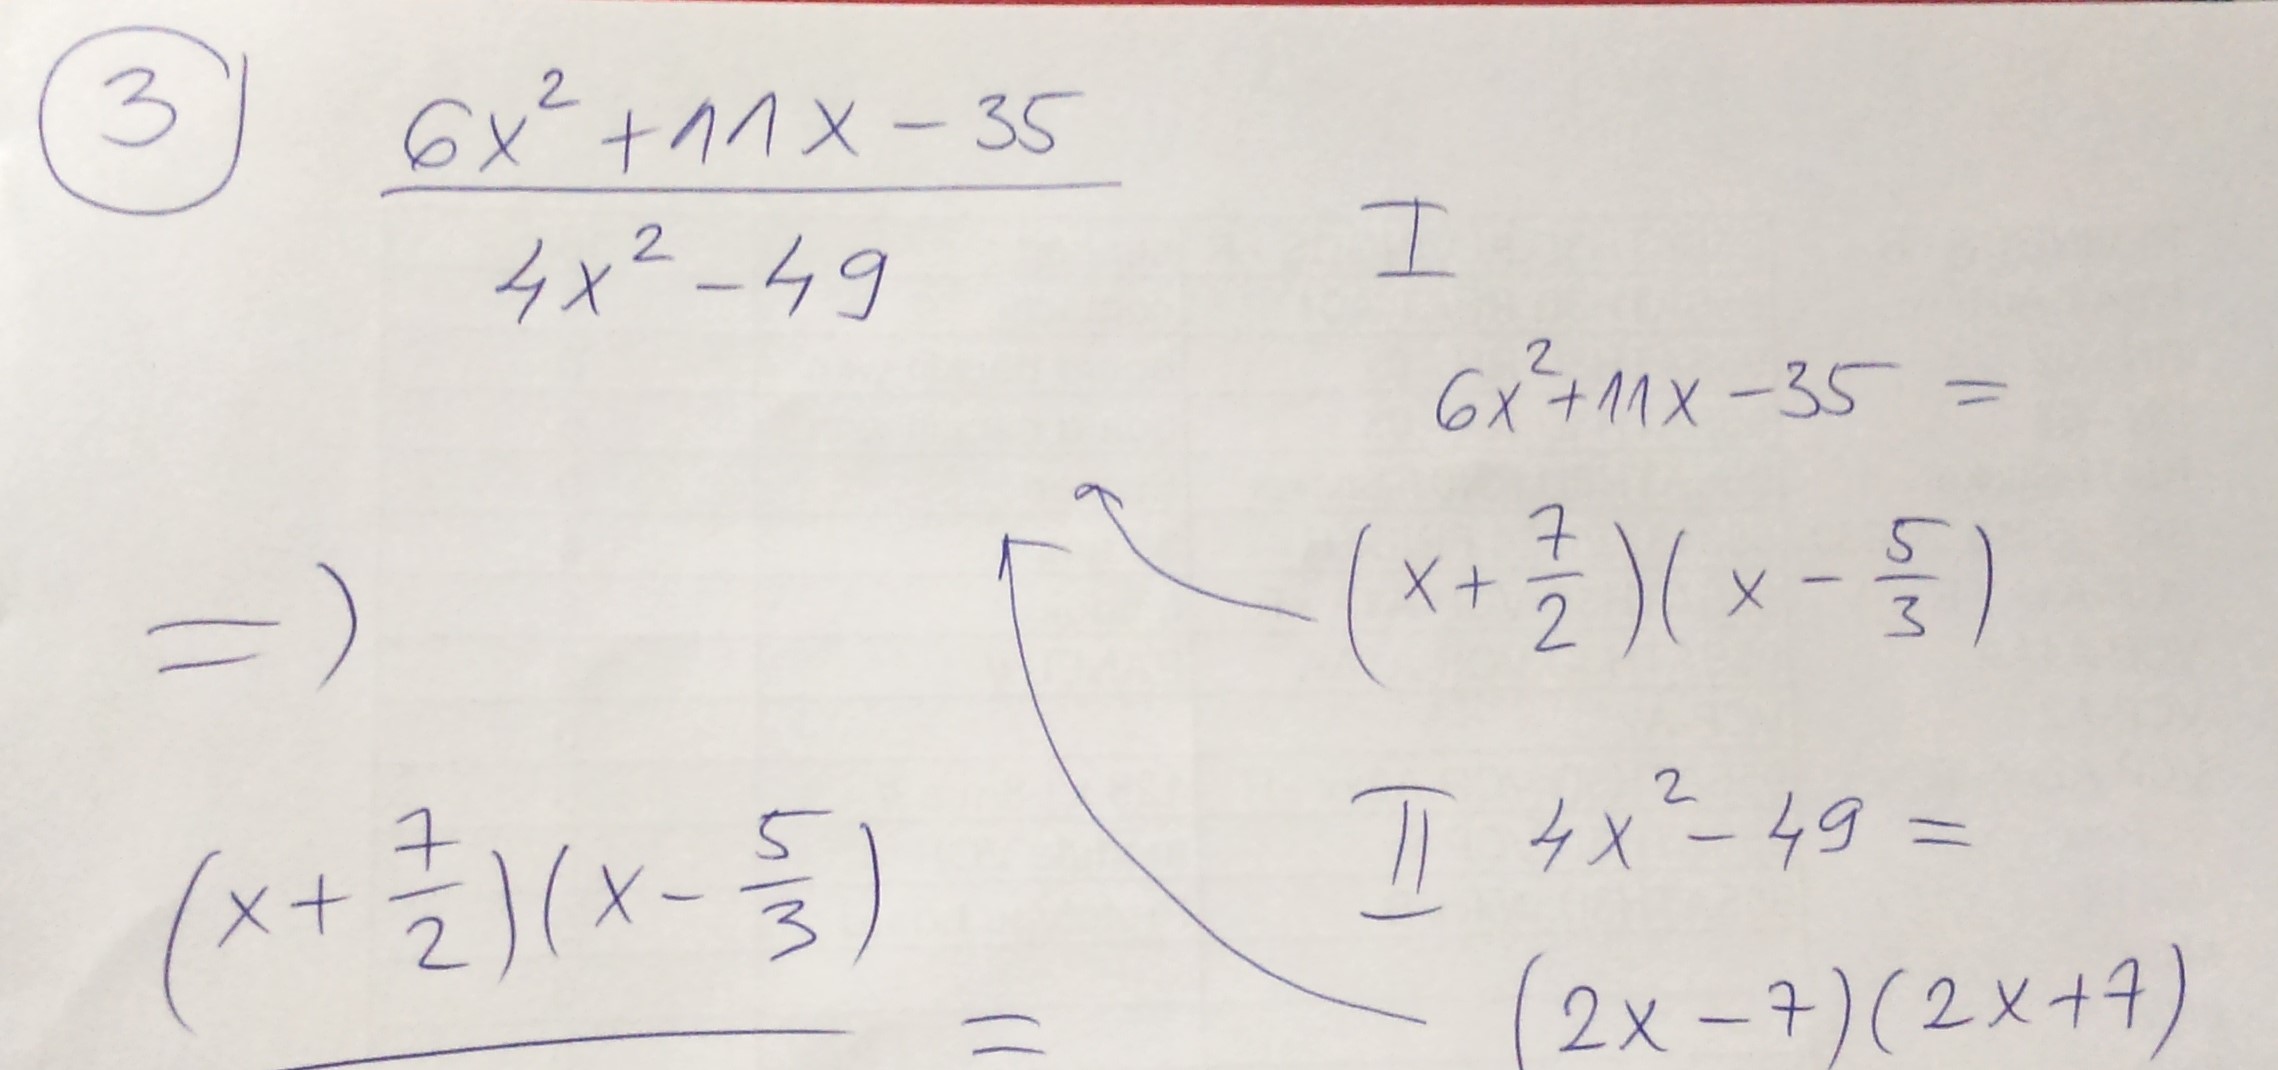 3
6x² + 11x - 35
4x² - 49
I
6x² + 11x - 35 =
(x + 7/2)(x - 5/3)
II 4x² - 49 =
(2x - 7)(2x + 7)
=)
(x + 7/2)(x - 5/3)
=